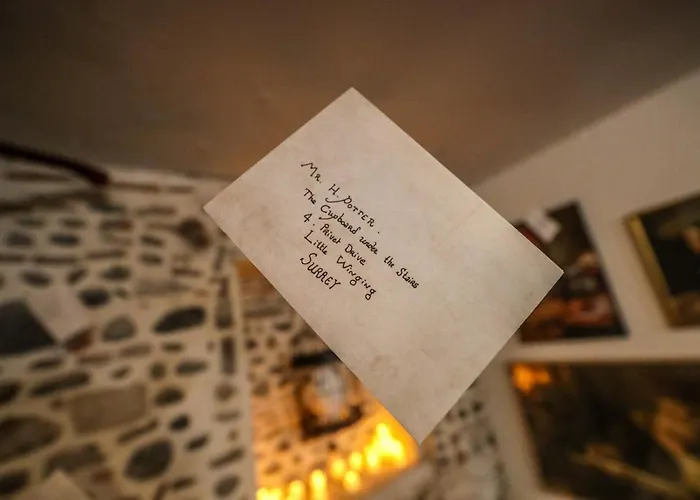 Mr. H. Potter.
The Cupboard under the Stairs
4. Privet Drive
Little Winging
SURREY